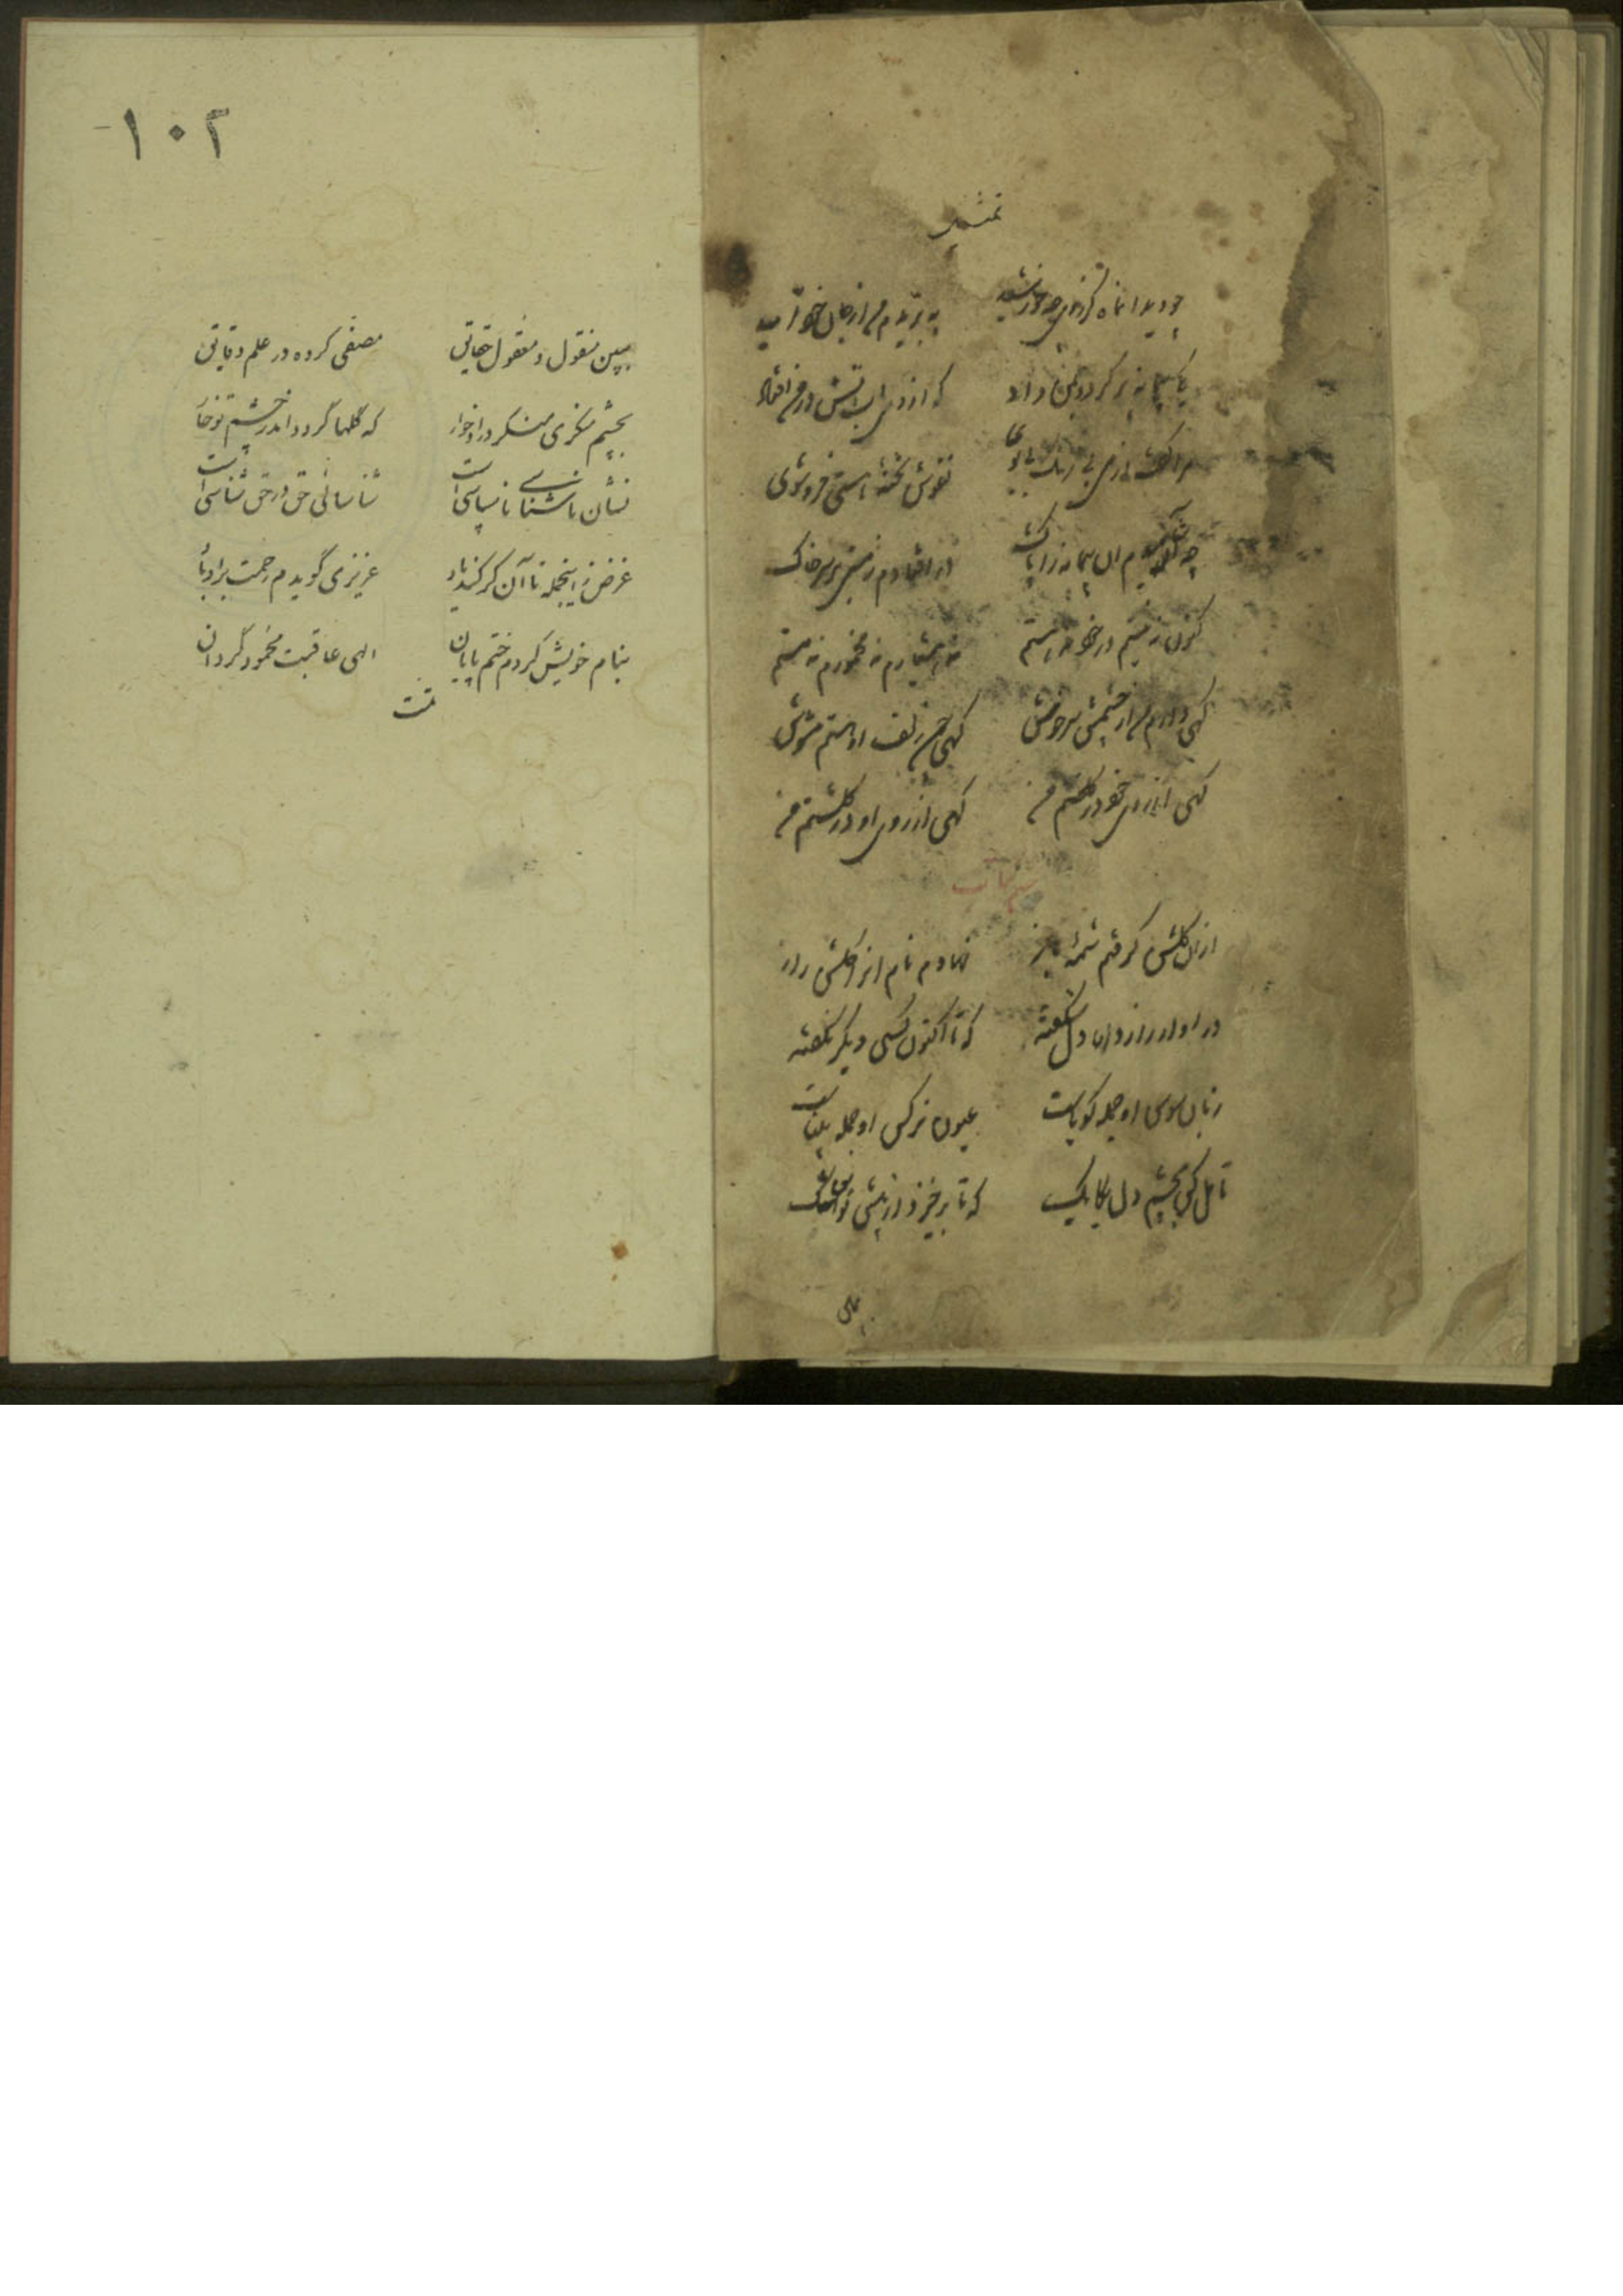 تمثیل
چو دید آن ماه کز روی چو خورشید ببریدم من از جان خود امید
یکی پیمانه پر کرد و بمن داد که از وی آب آتش در من افتاد
مرا گفت از می بی رنگ بی بوی نقوش تخته هستی فرو شوی
چو آشامیدم آن پیمانه را پاک در افتادم ز مستی بر سر خاک
کنون نه نیستم در خود نه هستم نه هشیارم نه مخمورم نه مستم
گهی دارم من از چشمش سرخوش گهی چون زلف او هستم مشوش
گهی از خوی خود در گلخنم من گهی از روی او در گلشنم من
از آن گلشن گرفتم شمه باز نهادم نام او را گلشن راز
در او از راز دل شکفته که تا اکنون کسی دیگر نگفته
زبان سوسن او جمله گویاست عیون نرگس او جمله بیناست
تامل کن بچشم دل یکایک که تا برخیزد از پیش تو این شک
ببین
۱۰۲
ببین منقول و معقول حقایق مصفی کرده در علم دقایق
بچشم منکری منگر در او خوار که گلها گردد اندر چشم تو خار
نشان ناشناسی ناسپاسی است شناسائی حق در حق شناسی است
غرض زینجمله تا آن کر کند یاد عزیزی گویدم رحمت بر او باد
بنام خویش کردم ختم پایان الهی عاقبت محمود گردان
تمت